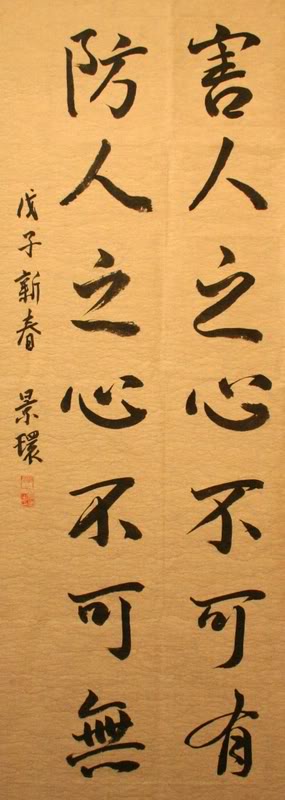 害人之心不可有
防人之心不可無
戊子新春 景環